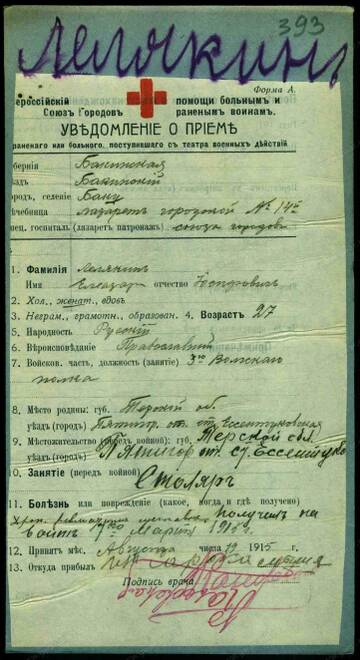 393
Лелякинъ
Форма А.
ероссійскій помощи больнымъ и
Союзъ Городовъ раненымъ воинамъ.
УВѢДОМЛЕНІЕ О ПРІЕМѢ
раненаго или больного, поступившаго съ театра военныхъ дѣйствій
бернія Бакинская
здъ Бакинскій
ородъ, селеніе Баку
лечебница лазаретъ городской № 14й
ец. госпиталь (лазаретъ патронажъ) союза городовъ
1. Фамилія Лелякинъ
Имя Елеазаръ отчество
2. Хол., женат., вдовъ.
3. Неграм., грамотн., образован. 4. Возрастъ 27
5. Народность Русскій
6. Вѣроисповѣданіе Православный
7. Войсков. часть, должность (занятіе) 3го Волжскаго
полка
8. Мѣсто родины: губ. Терской об.
уѣздъ (городъ) Пятигор. от. ст. Ессентукская
9. Мѣстожительство (передъ войной): губ. Терской обл.
уѣздъ (городъ) Пятигор от. ст. Ессентук
10. Занятіе (передъ войной)
Столяръ
11. Болѣзнь или поврежденіе (какое, когда и гдѣ получено)
получилъ на
войнѣ 7го Марта 1915 г.
12. Принятъ мѣс. Августа числа 19 1915 г.
13. Откуда прибылъ
Подпись врача